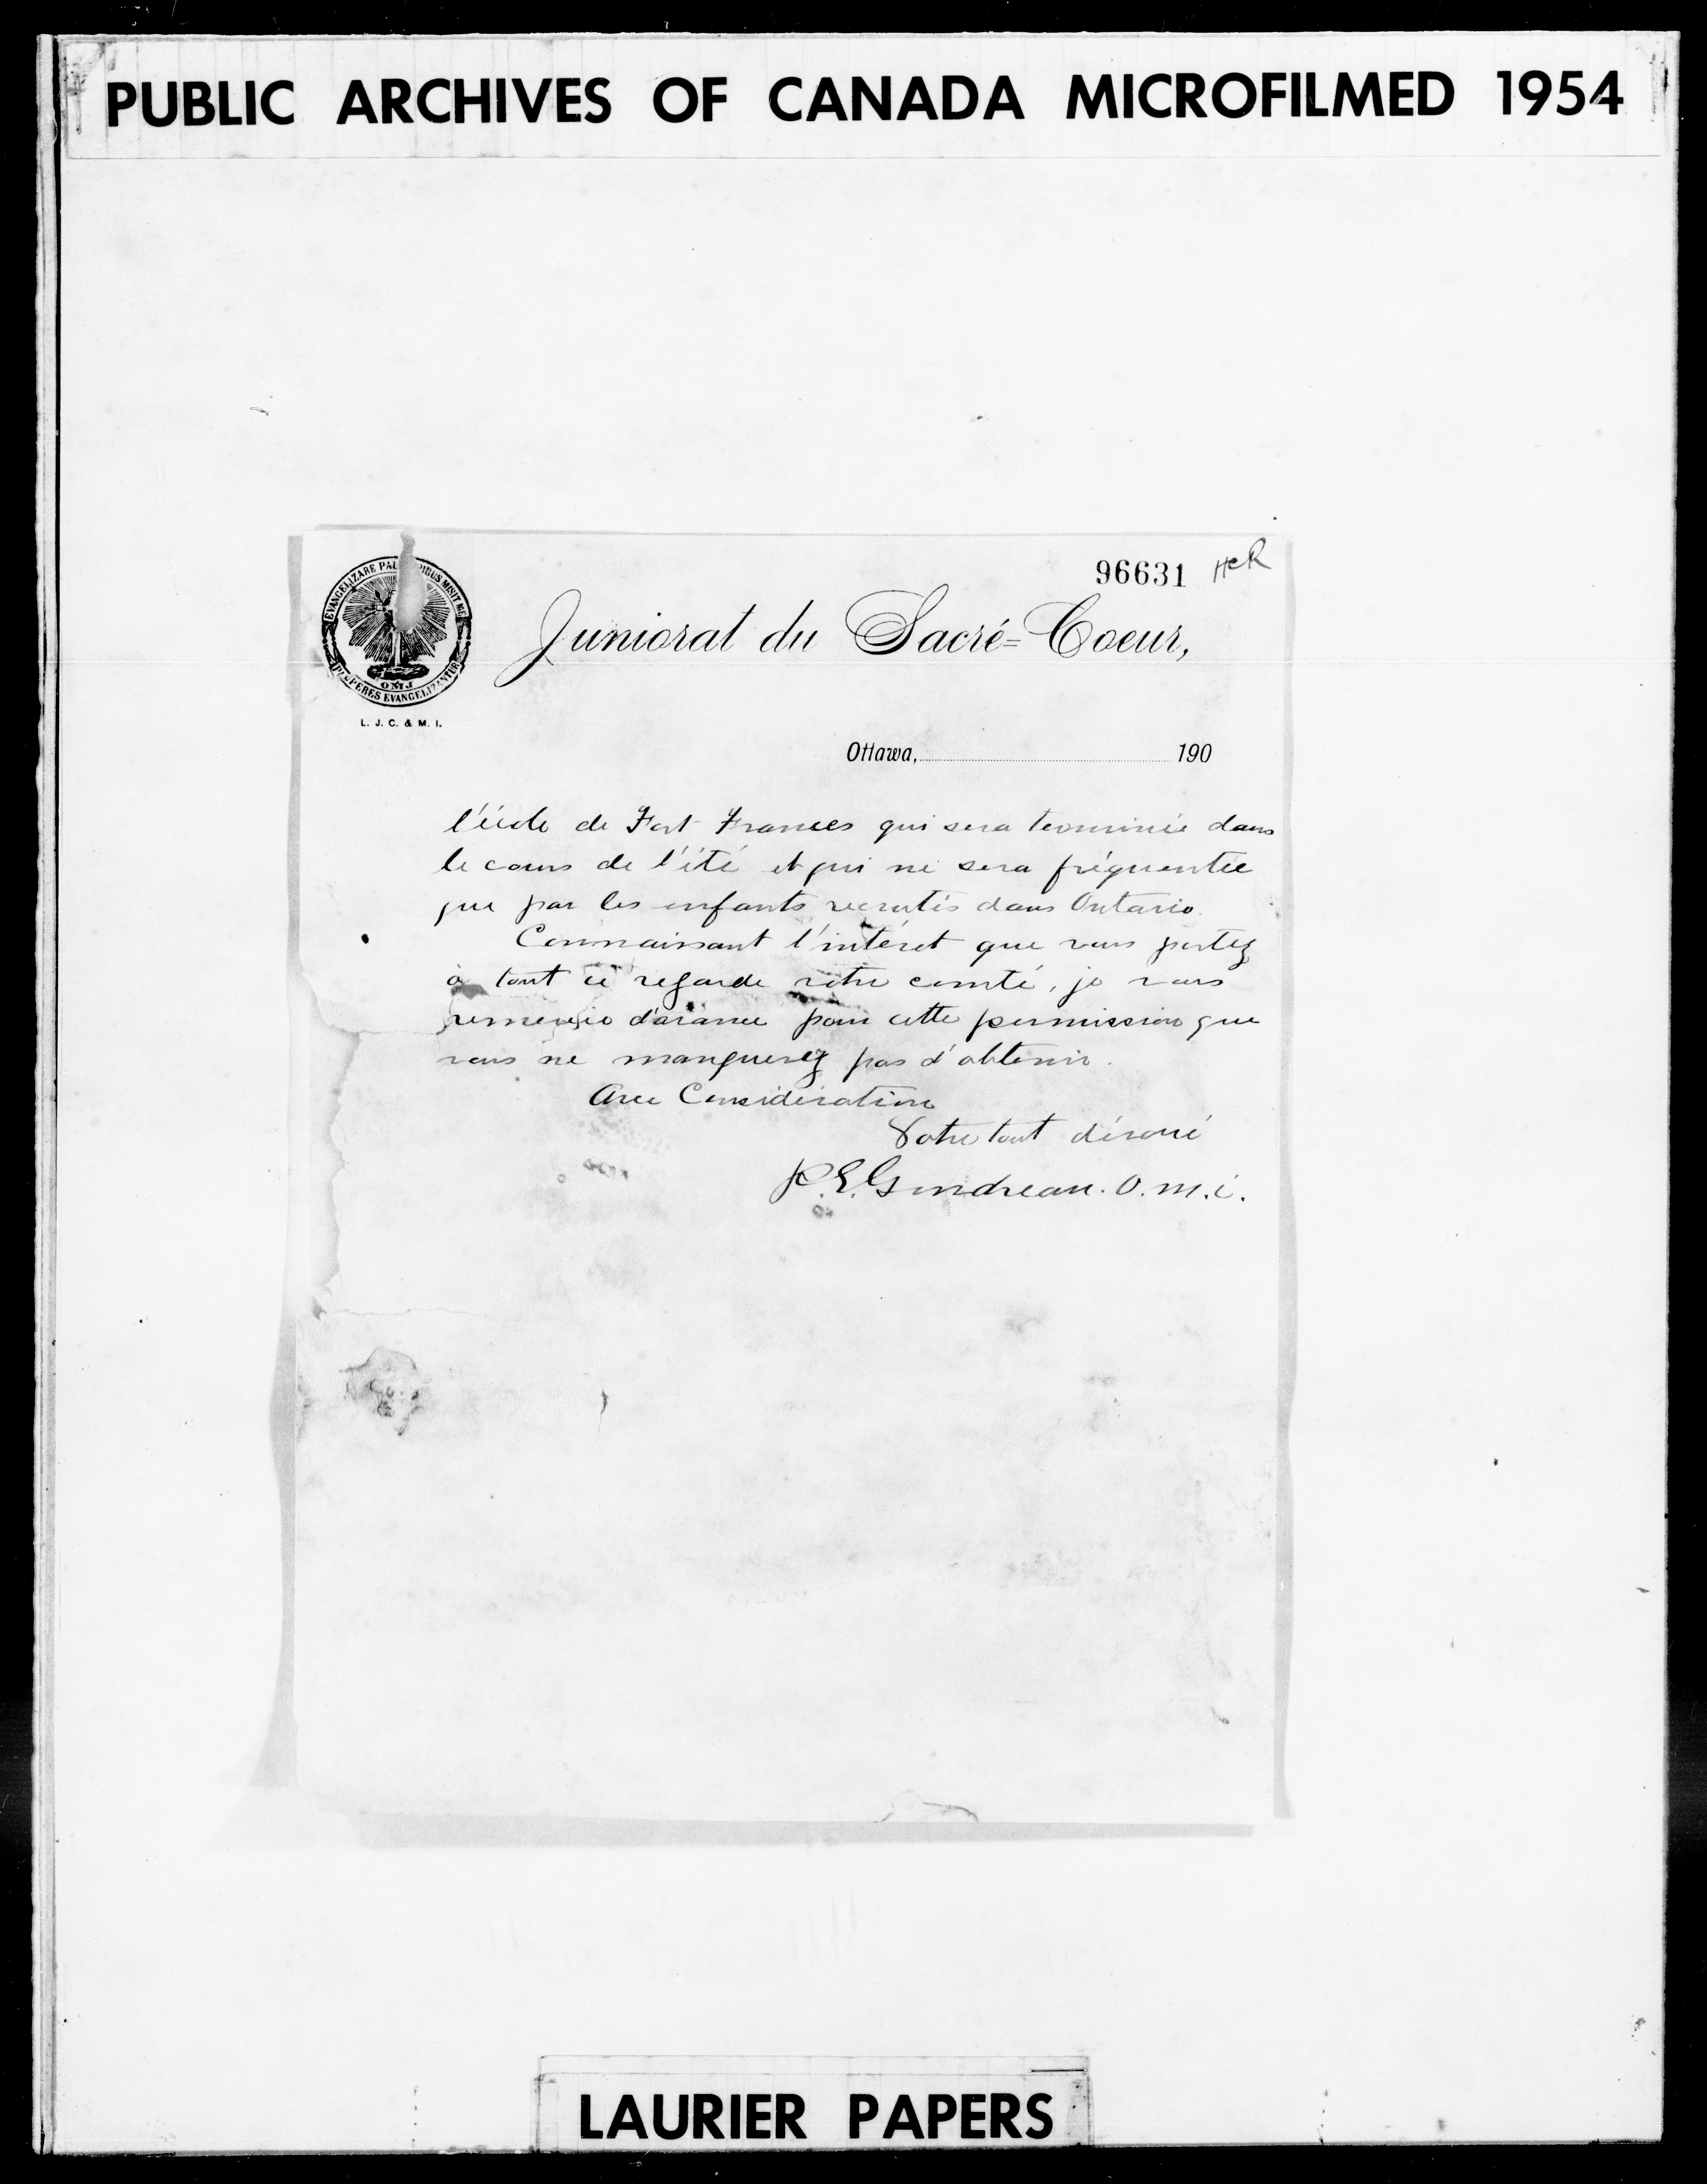 PUBLIC ARCHIVES OF CANADA MICROFILMED 1954
96631 HCR
EVANGELIZARE PAU IBUS MISIT ME
PAUPERES EVANGELIZANTUR
OMJ
L. J. C. & M. I.
Juniorat du Sacré-Coeur,
Ottawa, 190
l'école de Fort Frances qui sera terminée dans
le cours de l'été et qui ne sera fréquentée
que par les enfants recrutés dans Ontario.
Connaissant l'intérêt que vous portez
à tout ce regarde votre comté, je vous
remercie d'avance pour cette permission que
vous ne manquerez pas d'obtenir.
Avec Considération
Votre tout dévoué
P. E. Gendreau. O. m. i.
LAURIER PAPERS